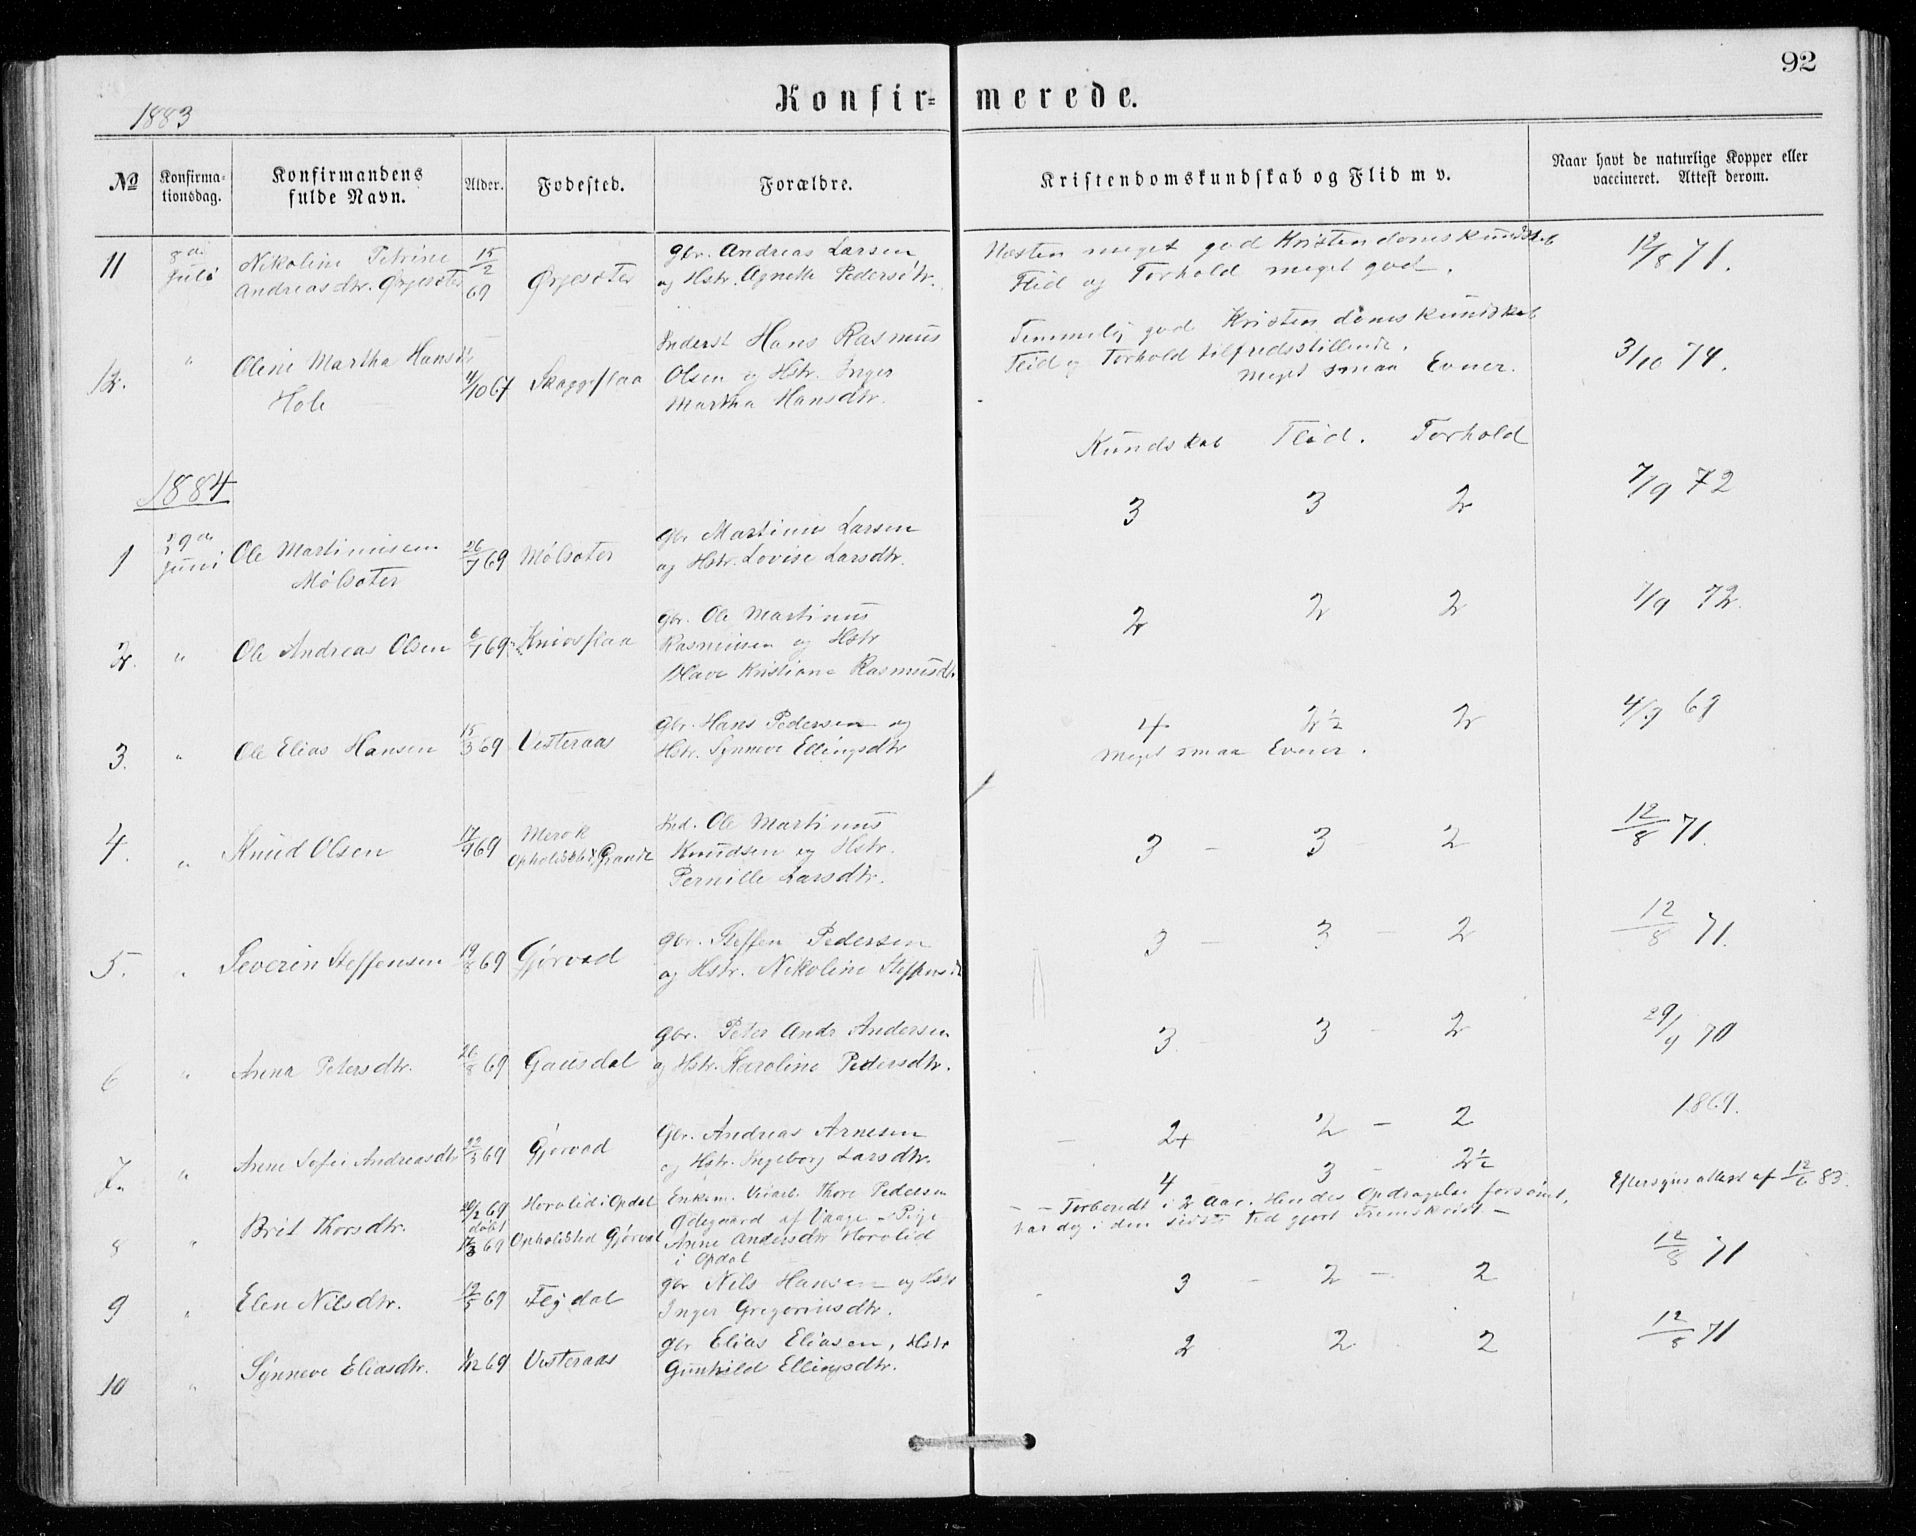 92
Konfir= merede.
1883
No
Konfirma-
tionsdag.
Konfirmandens
fulde Navn.
Alder.
Fodested.
Forældre.
Kristendomskundskab og Flid m v.
Naar havt de naturlige Kopper eller
vaccineret. Attest derom.
11 8de Juli Nikoline Petrine 15/2 69 Ørjesæter Gbr. Andreas Larsen Næsten meget god Kristendomskundskab 12/8 71.
Andreasdtr. Ørjesæter og Hstr. Agnethe Pedersdtr. Flid og Forhold meget god.
12. " Oline Martha Hansdtr 4/10 67 Skaggeflaa Inderst Hans Rasmus Temmelig god Kristendomskundskab 3/10 74.
Hole Olsen og Hstr. Inger Flid og Forhold tilfredsstillende.
Martha Hansdtr. Meget smaa Evner.
Kundskab Flid. Forhold
1884
1 29de Juni Ole Martinusen 26/7 69 Mølsæter Gbr Martinus Larsen 3 3 2 7/9 72
Mølsæter og Hstr. Lovise Larsdtr.
2. " Ole Andreas Olsen 6/1 69 Knivsflaa Gbr. Ole Martinus 2 2 2 7/9 72.
Rasmusen og Hstr
Olave Kristiane Rasmusdtr.
3. " Ole Elias Hansen 15/3 69 Vesteraas Gbr. Hans Pedersen og 4 2½ 2 4/9 69
Hstr. Synneve Ellingsdtr Meget smaa Evner.
4. " Knud Olsen 17/9 69 Merok Ind. Ole Martinus 3 - 3 - 2 12/8 71.
Opholdsted Grande Knudsen og Hstr.
Pernille Larsdtr.
5. " Severin Steffensen 19/8 69 Gjørvad Gbr. Steffen Pedersen 3 - 3 - 2 12/8 71.
og Hstr. Nikoline Steffensdtr
6 " Anna Petersdtr. 26/8 69 Gausdal Gbr. Peter Andr Andersen 3 - 3 - 2 29/9 70
og Hstr. Karoline Pedersdtr.
7. " Anne Sofie Andreasdtr 22/3 69 Gjørvad Gbr. Andreas Arnesen 2+ 2 - 2 1869.
og Hstr. Ingeborg Larsdtr.
8 " Brit Thorsdtr. 69 Horvlid i Opdal Enkem. Thore Pedersen 4 3 - 2½ Eftersynsattest af 12/6 83.
døbt 69 Opholdsted Gjørvad Ødegaard af Vaage - Pige - - Forberedt i 2 Aar. Hendes Opdragelse forsømt,
Anne Andersdtr Horvlid har dog i den sidste Tid gjort Fremskridt. -
i Opdal
9 " Elen Nilsdtr. 12/5 69 Flydal Gbr Nils Hansen og Hstr 3 - 2 - 2 12/8 71
Inger Gregoriusdtr.
10 " Synneve Eliasdtr. 1/12 69 Vesteraas Gbr Elias Eliasen, Hstr 2 2 2 12/8 71
Gunhild Ellingsdtr.